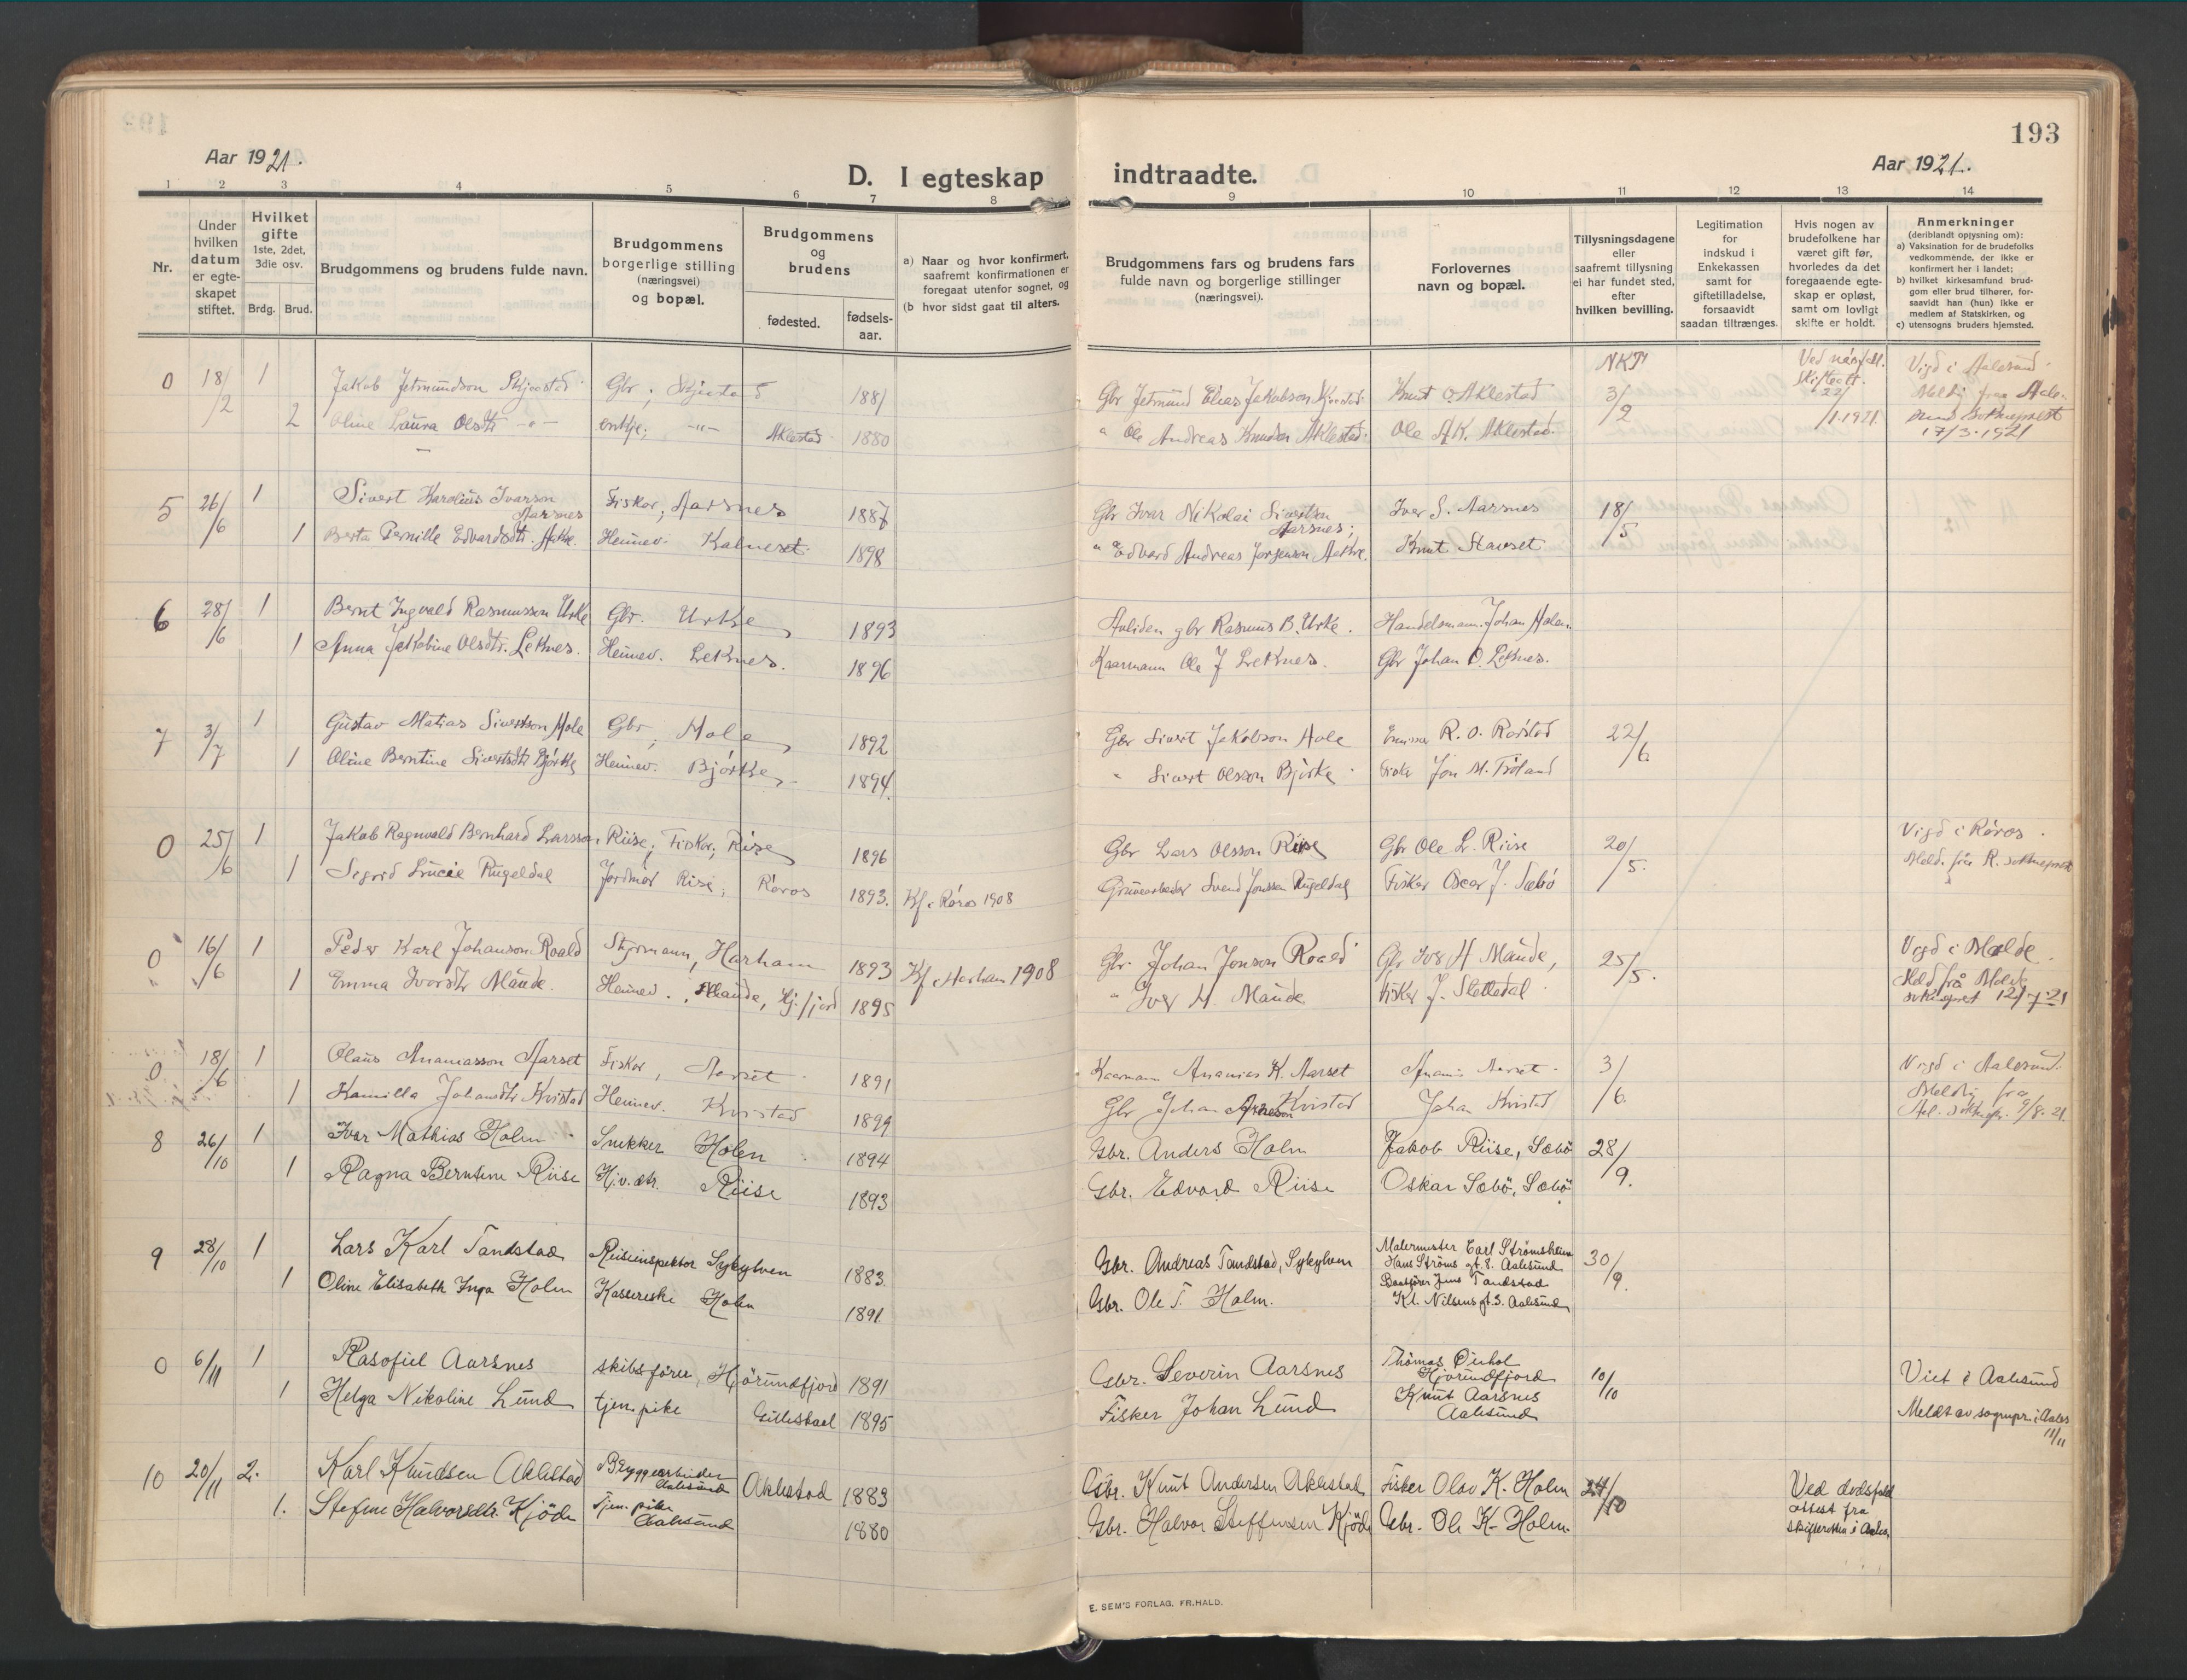 193
Aar 1921.
Aar 1921.
D. I egteskap indtraadte.
1 2 3 4 5 6 7 8 9 10 11 12 13 14
Nr.
Under hvilken datum er egte-skapet stiftet.
Hvilket gifte 1ste, 2det, 3die osv.
Brdg. Brud.
Brudgommens og brudens fulde navn.
Brudgommens borgerlige stilling (næringsvei) og bopæl.
Brudgommens og brudens
fødested.
fødsels-aar.
a) Naar og hvor konfirmert, saafremt konfirmationen er foregaat utenfor sognet, og
(b hvor sidst gaat til alters.
Brudgommens fars og brudens fars fulde navn og borgerlige stillinger (næringsvei).
Forlovernes navn og bopæl.
Tillysningsdagene eller saafremt tillysning ei har fundet sted, efter hvilken bevilling.
Legitimation for indskud i Enkekassen samt for giftetilladelse, forsaavidt saadan tiltrænges.
Hvis nogen av brudefolkene har været gift før, hvorledes da det foregaaende egte-skap er opløst, samt om lovligt skifte er holdt.
Anmerkninger (deriblandt opjysning om):
a) Vaksination for de brudefolks vedkommende, der ikke er konfirmert her i landet;
b) hvilket kirkesamfund brud-gom eller brud tilhører, for-saavidt han (hun) ikke er medlem af Statskirken, og
c) utensogns bruders hjemsted.
0 18/2 1 Jakob Jetmundson Skjastad Gbr; Skjastad 1881 Gbr Jetmund Elias Jakobson Knut O Aklestad 3/2 22/1.1921 Vigd i Aalesund
2 Oline Laura Olsdtr -"- enkje; -"- Aklestad 1880 " Ole Andreas Knudsen Aklestad Ole A K. Aklestad 17/3.1921
5 26/6 1 Sivert Karolius Ivarson Aarsnes Fiskar, Aarsnes 1887 Gbr Ivar Nikolai Sivertson Aarsnes; Iver S. Aarsnes 18/5
1 Berta Pernille Edvardsdtr. Heimev. 1898 " Edvard Andreas Jorgenson Knut Stavset
6 28/6 1 Bernt Ingvald Rasmusson Urke Gbr. Urke 1893 Avliden gbr Rasmus B. Urke. Handelsmann Johan Holen
1 Anna Jakobine Olsdtr. Leknes. Heimev. Leknes. 1896 Kaarmann Ole J Leknes. Gbr Johan O. Leknes.
7 3/7 1 Gustav Matias Sivertson Hole Gbr, Hole 1892 Gbr Sivert Jakobson Hole R. O. Rørstad 22/6
1 Oline Berntine Sivertsdtr Bjørke Heimev. Bjørke 1894. " Sivert Olsson Bjørke Jon M.
0 25/6 1 Jakob Ragnvald Bernhard Larsson Riise; Fiskar; Riise 1896 Gbr Lars Olsson Riise Gbr Ole L. Riise 20/5. Vigd i Røros.
1 Sigrid Lucie Rugeldal Jordmor Riise; Røros 1893. Kf. Røros 1908 Gruvearbeider Svend Jonssen Rugeldal Fisker Oscar J. Sæbø Meld. frå R. sokneprest
0 16/6 1 Peder Karl Johanson Roald Styrmann, Harham 1893 Kf. Harham 1908 Gbr. Johan Jonson Roald Gbr Iver H Maude, 25/5. Vigd i Molde.
1 Emma Iversdtr Maude. Heimev., Maude, Hj.fjord 1895 " Iver H. Maude Fisker J. Slettedal Meld frå Molde sokneprest 12/7.21
0 18/6 1 Olaus Ananiasson Aarset Fiskar, Aarset 1891 Kaarmann Ananias K. Aarset Anani Aarset 3/6. Vigd i Aalesund.
1 Kamilla Johansdtr Kvistad Heimev. Kvistad 1899 Gbr Johan Kvistad Johan Kvistad Meldg fra 9/8.21.
8 26/10 1 Ivar Mathias Holm Snekker Holen 1894 Gbr. Anders Holm Jakob Riise, Sæbö 28/9.
1 Ragna Berntine Riise Hj.v.dtr. Riise 1893 Gbr. Edvard Riise Oskar Sæbö, Sæbö
9 28/10 1 Lars Karl Tandstad Reiseinspektor Sykylven 1883. Gbr. Andreas Tandstad, Sykylven Malermester Carl Strömsheim Hans Ströms gt. 8. Aalesund 30/9.
1 Oline Elisabeth Inga Holm Kassereske Holen 1891 Gbr. Ole T. Holm. Baatförer Jens Tandstad Kl. Nilsens gt. 3. Aalesund
0 6/11 1 Rasofiel Aarsnes skibsförer, Hjörundfjord 1891 Gbr. Severin Aarsnes Thomas Hjörundfjord 10/10 Viet i Aalesund
1 Helga Nikoline Lund tjen. pike 1895 Fisker Johan Lund Knut Aarsnes Aalesund Meldt av sognepr. i Aales 11/11
10 20/11 2. Karl Knudsen Aklestad Bryggearbeider Aalesund Aklestad 1883 Gbr. Knut Andersen Aklestad Fisker Olav K. Holm 24/10 Ved dødsfald attest fra skifteretten i Aales.
1. Stefine Halvorsdtr. Kjöde Tjen. pike Aalesund 1880 Gbr. Halvor Steffensen Kjöde Gbr. Ole K. Holm.
E. SEM'S FORLAG, FR.HALD.